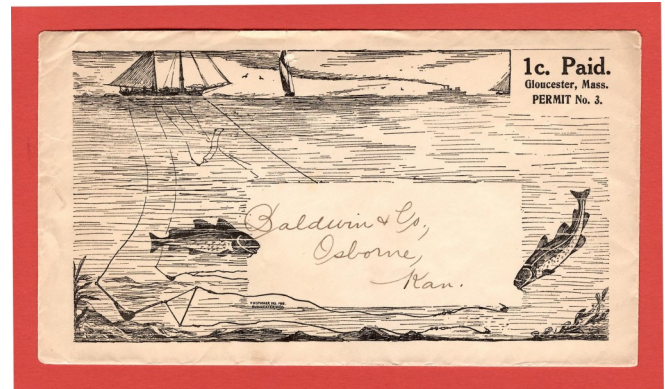 1c. Paid.
Gloucester, Mass.
PERMIT No. 3.
Baldwin & Co.,
Osborne,
Kan.